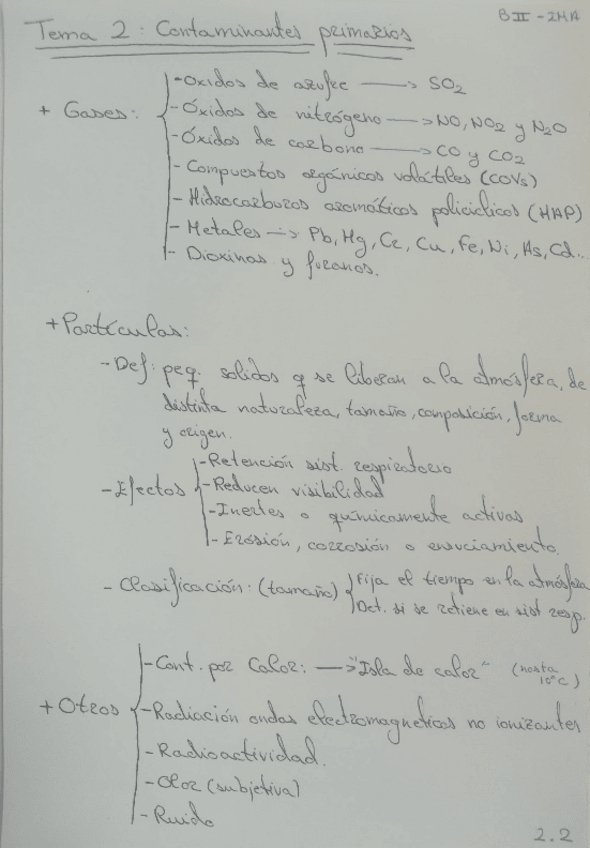 BII - IMA
Tema 2: Contaminantes primarios
+ Gases:
- Óxidos de azufre → SO2
- Óxidos de nitrógeno → NO, NO2 y N2O
- Óxidos de carbono → CO y CO2
- Compuestos orgánicos volátiles (COVs)
- Hidrocarburos aromáticos policíclicos (HAP)
- Metales → Pb, Hg, Cr, Cu, Fe, Ni, As, Cd...
- Dioxinas y furanos.
+ Partículas:
- Def: peq. solidos q se liberan a la atmósfera, de
distinta naturaleza, tamaño, composición, forma
y origen.
- Efectos
- Retención sist. respiratorio
- Reducen visibilidad
- Inertes o químicamente activas
- Erosión, corrosión o ensuciamiento.
- Clasificación: (tamaño)
Fija el tiempo en la atmósfera
Det. si se retiene en sist resp.
+ Otros
- Cont. por Calor: → "Isla de calor" (hasta
10°C)
- Radiación ondas electromagneticas no ionizantes
- Radioactividad.
- Olor (subjetiva)
- Ruido
2.2